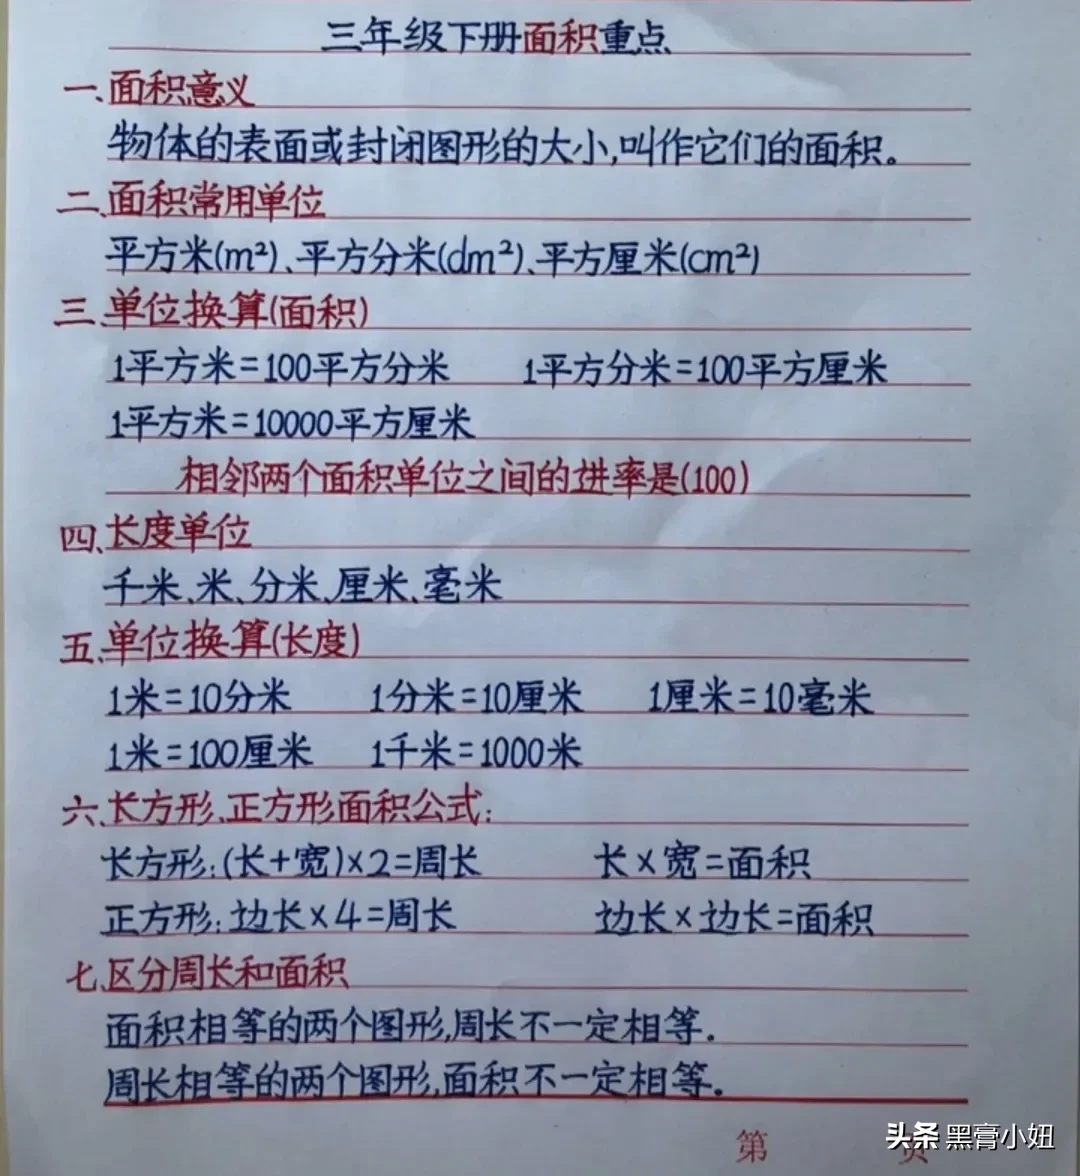 三年级下册面积重点
一、面积意义
物体的表面或封闭图形的大小,叫作它们的面积。
二、面积常用单位
平方米(m²)、平方分米(dm²)、平方厘米(cm²)
三、单位换算(面积)
1平方米=100平方分米 1平方分米=100平方厘米
1平方米=10000平方厘米
相邻两个面积单位之间的进率是(100)
四、长度单位
千米、米、分米、厘米、毫米
五、单位换算(长度)
1米=10分米 1分米=10厘米 1厘米=10毫米
1米=100厘米 1千米=1000米
六、长方形、正方形面积公式:
长方形:(长+宽)×2=周长 长×宽=面积
正方形:边长×4=周长 边长×边长=面积
七、区分周长和面积
面积相等的两个图形,周长不一定相等.
周长相等的两个图形,面积不一定相等.
第 页
头条 黑膏小妞